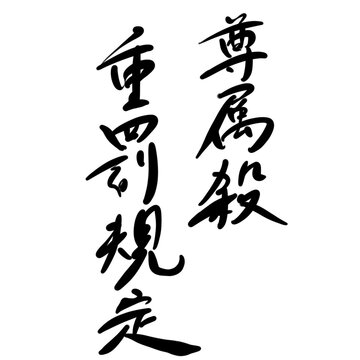 尊属殺
重罰規定